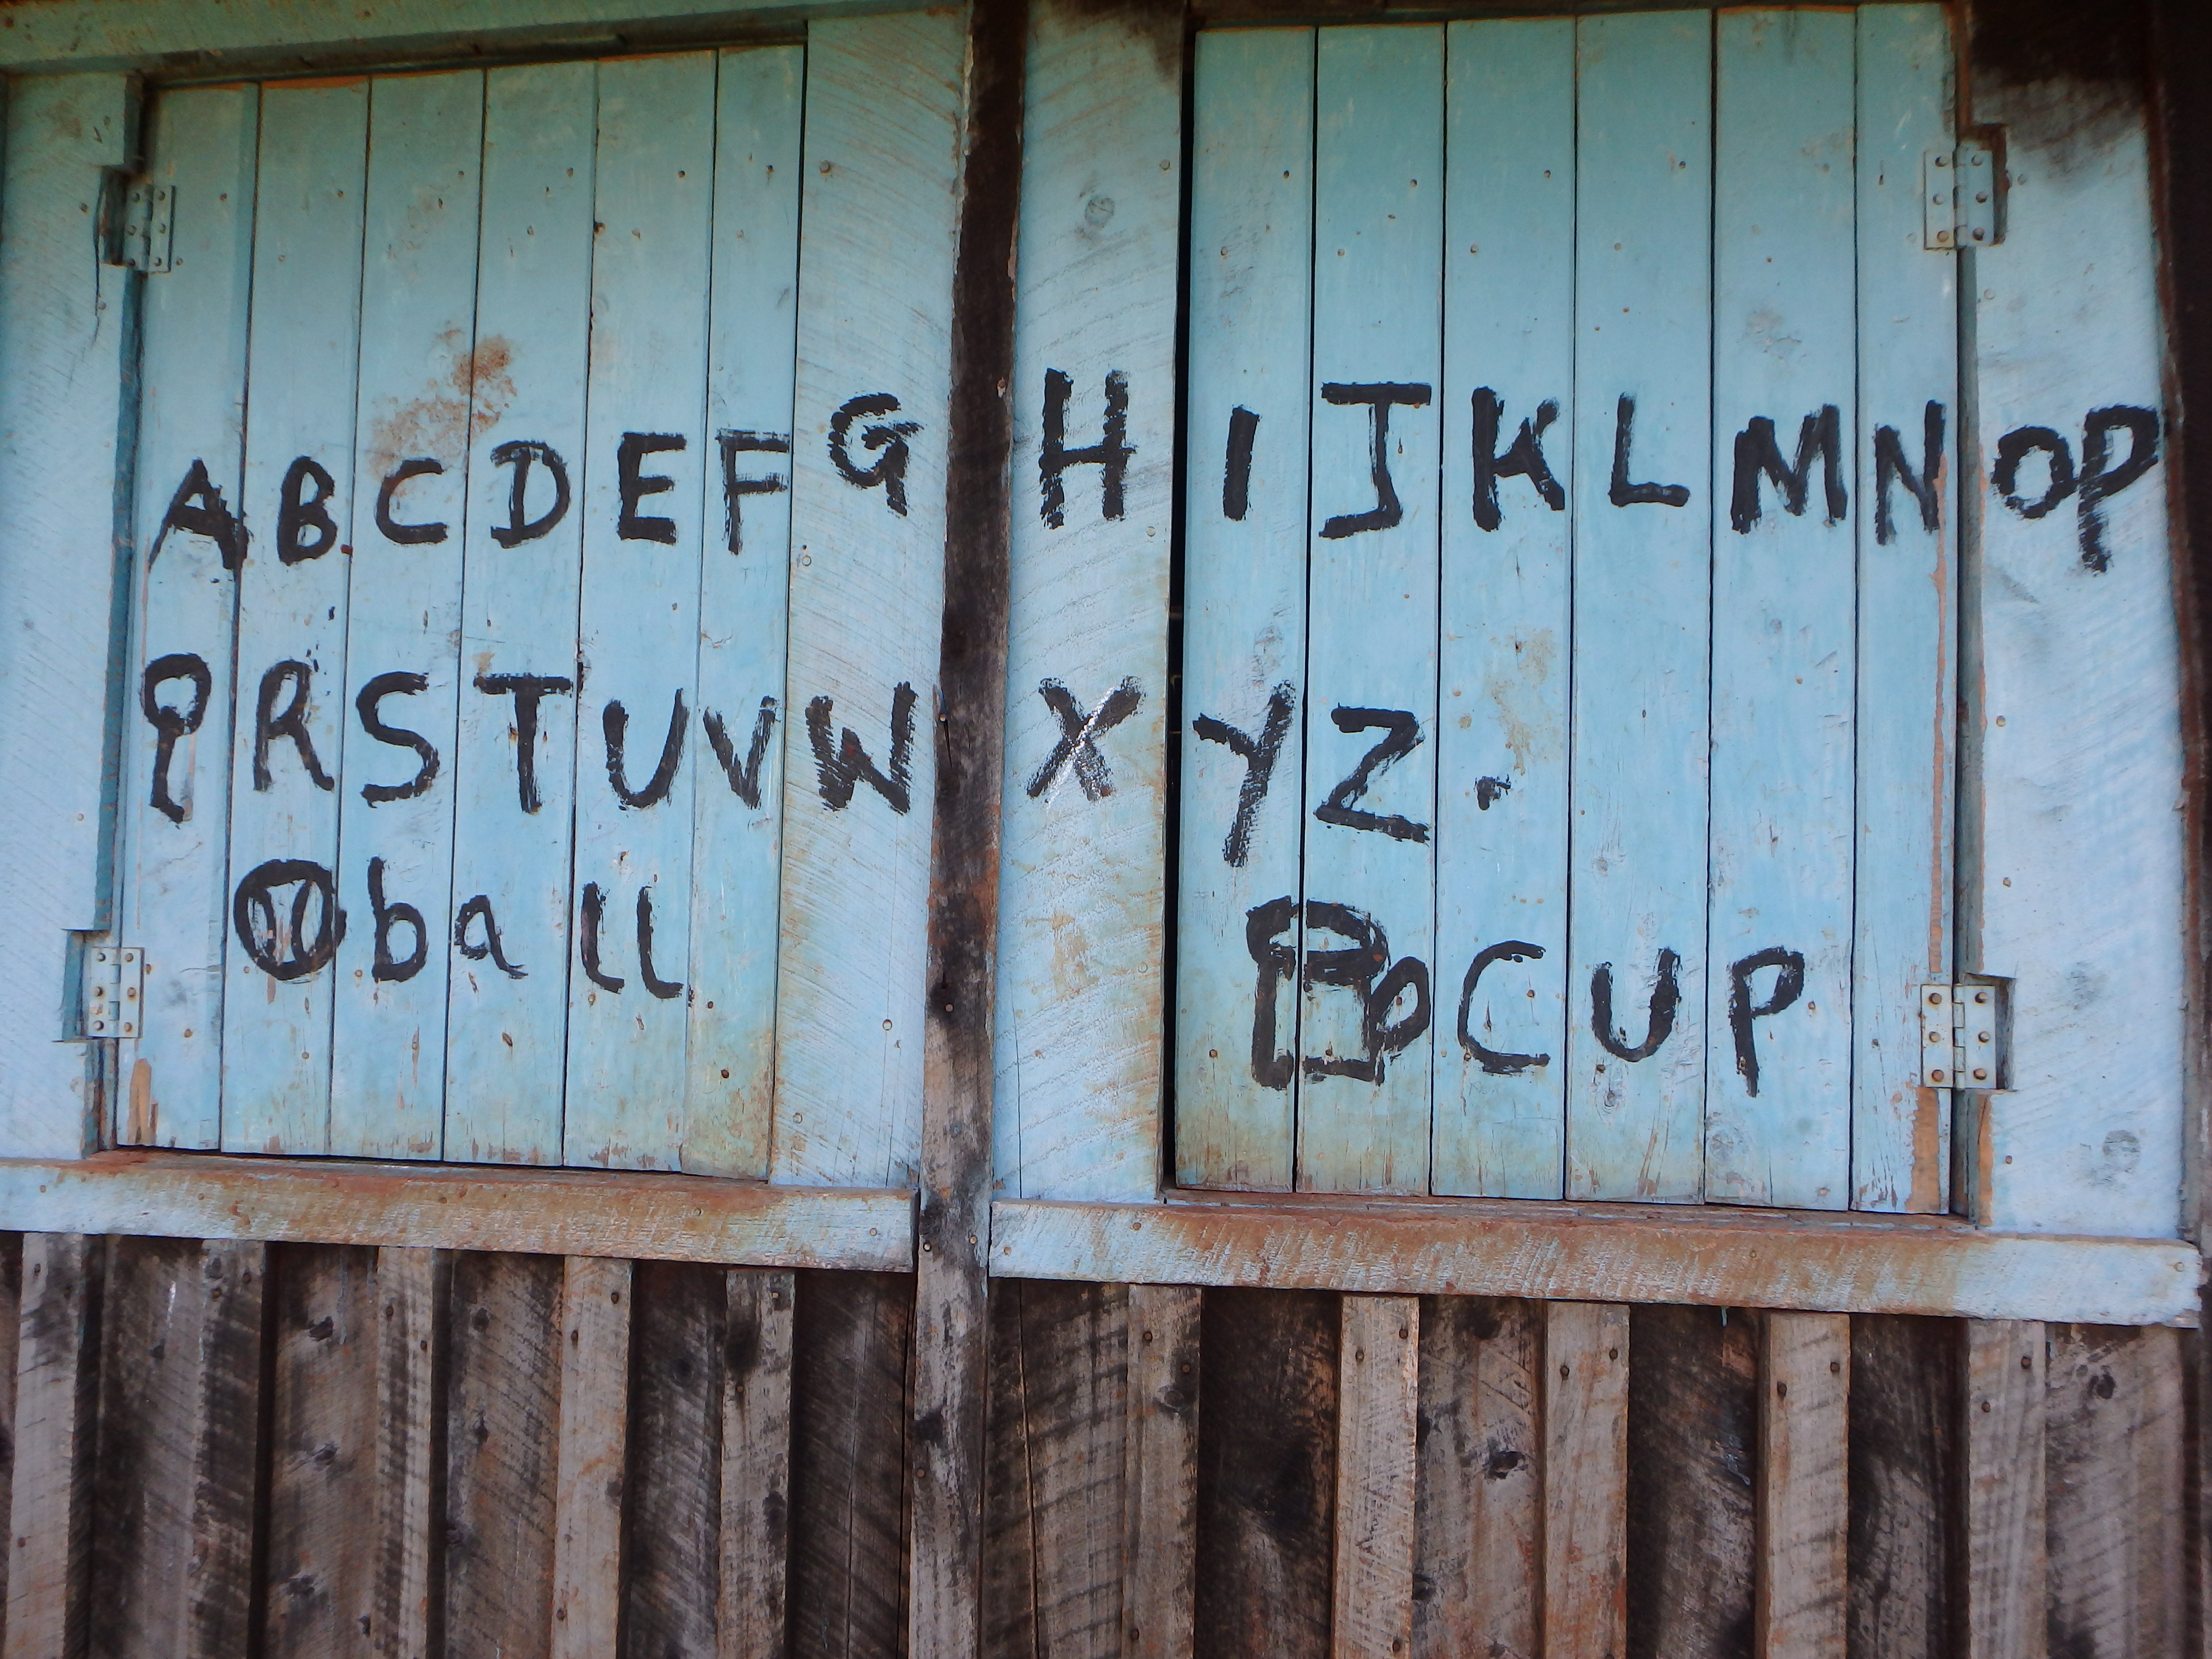 A B C D E F G H I J K L M N O P
Q R S T U V W X Y Z .
ball CUP